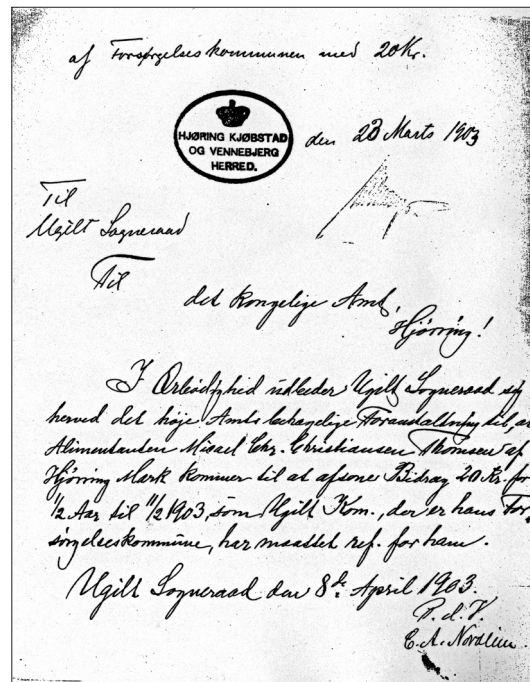 af Forsørgelseskommunen med 20 Kr.
HJØRING KJØBSTAD
OG VENNEBJERG
HERRED.
den 23 Marts 1903
Til
Ugilt Sogneraad
Til
det kongelige Amt,
Hjørring!
I Ærbødighed udbeder Ugilt Sogneraad sig
herved det høje Amts behagelige Foranstaltning til, at
Alimentanden Misael Chr. Christiansen Thomsen af
Hjørring Mark kommer til at afsone Bidrag 20 Kr. for
1/2 Aar til 11/2 1903, som Ugilt Kom., der er hans For-
sørgelseskommune, har maattet ref. for ham.
Ugilt Sogneraad den 8de April 1903.
P. S. V.
C. A. Nordlien